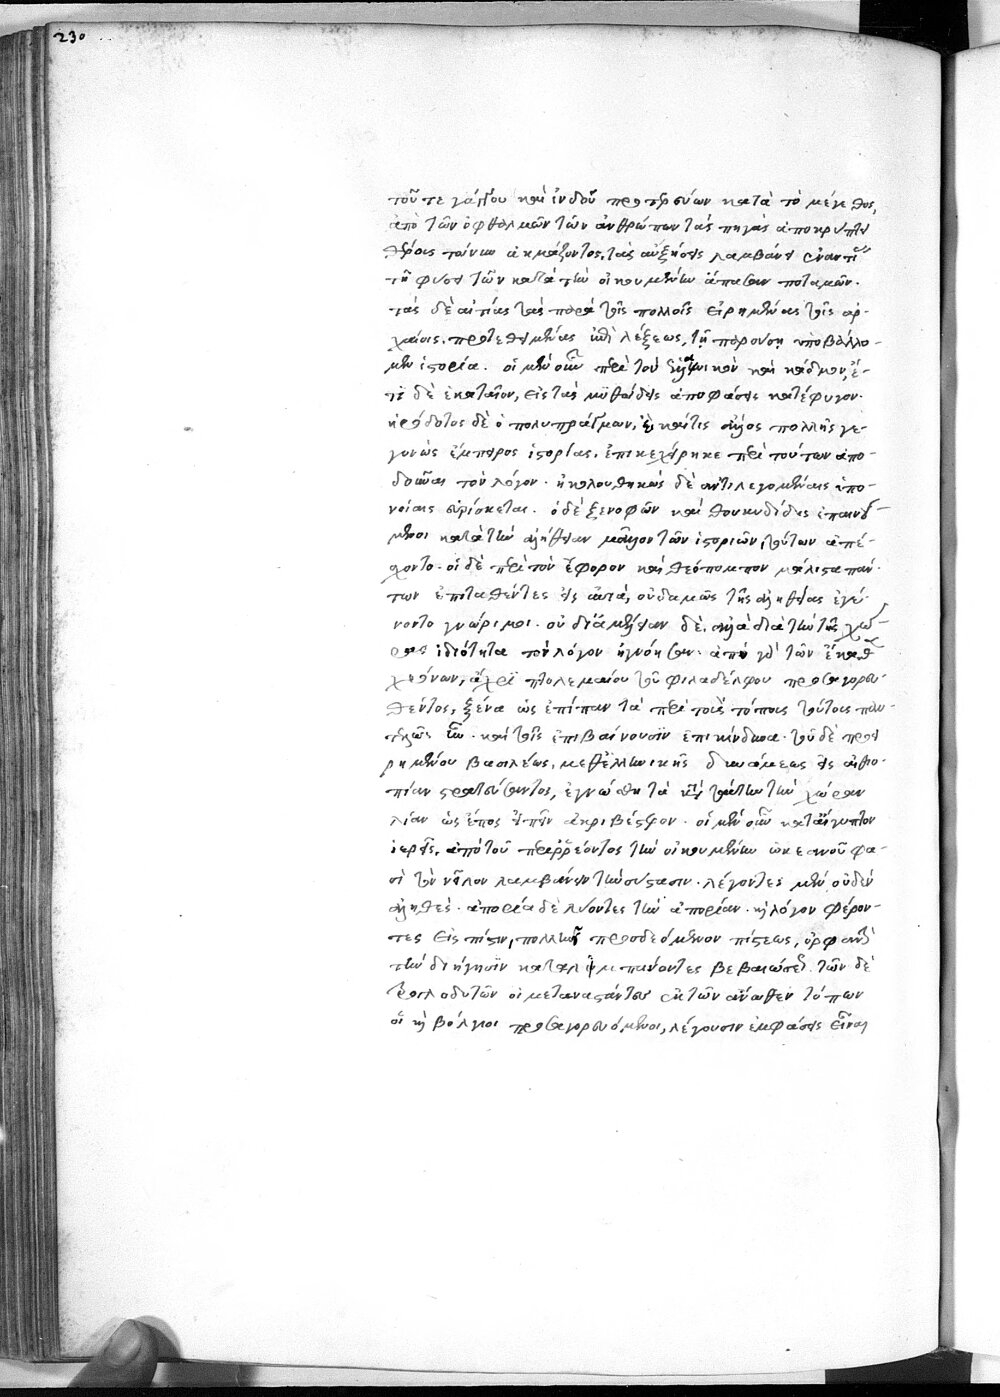 230
τοῦ τε γάγγου καὶ ἰνδοῦ προτερεύων κατὰ τὸ μέγεθος,
ἀπὸ τῶν ὀφθαλμῶν τῶν ἀνθρώπων τὰς πηγὰς ἀποκρύπτει
θέρους τοίνυν ἀκμάζοντος, τὰς αὐξήσεις λαμβάνει ἐναντία
τῇ φύσει τῶν κατὰ τὴν οἰκουμένην ἁπάντων ποταμῶν.
τὰς δὲ αἰτίας τὰς παρὰ τοῖς πολλοῖς εἰρημένας τοῖς ἀρ-
χαίοις, προτεθειμένας ἐπὶ λέξεως, τῇ παρούσῃ ὑποβάλλο-
μεν ἱστορία. οἱ μὲν οὖν περὶ τὸν καὶ κάδμον, ἔ-
τι δὲ ἑκαταῖον, εἰς τὰς μυθώδεις ἀποφάσεις κατέφυγον.
ἡρόδοτος δὲ ὁ πολυπράγμων, εἰ καί τις ἄλλος πολλῆς γε-
γονὼς ἔμπειρος ἱστορίας, ἐπικεχείρηκε περὶ τούτων ἀπο-
δοῦναι τὸν λόγον. ἠκολουθηκὼς δὲ ἀντιλεγομέναις ὑπο-
νοίαις εὑρίσκεται. ὁ δὲ ξενοφῶν καὶ θουκυδίδης ἐπαινού-
μενοι κατὰ τὴν ἀλήθειαν μᾶλλον τῶν ἱστοριῶν, τούτων ἀπέ-
χοντο. οἱ δὲ περὶ τὸν ἔφορον καὶ θεόπομπον μάλιστα πάν-
των ἐπιταθέντες εἰς αὐτά, οὐδαμῶς τῆς ἀληθείας ἐγέ-
νοντο γνώριμοι. οὐ δι' ἀμέλειαν δὲ, ἀλλὰ διὰ τὴν τῆς χώ-
ρας ἰδιότητα τὸν λόγον ἠγνόησαν. ἀπὸ γὰρ τῶν
χρόνων, ἄχρι πτολεμαίου τοῦ φιλαδέλφου προσαγορευ-
θέντος, ξένα ὡς ἐπίπαν τὰ περὶ τοὺς τόπους τούτους παν-
τελῶς ἦν. καὶ τοῖς ἐπιβαίνουσιν ἐπικίνδυνα. τοῦ δὲ προει
ρημένου βασιλέως, μεθ' ἑλληνικῆς δυνάμεως εἰς αἰθιο-
πίαν στρατεύσαντος, ἐγνώσθη τὰ κατὰ ταύτην τὴν χώραν
λίαν ὡς ἔπος εἰπεῖν ἀκριβέστερον. οἱ μὲν οὖν κατ' αἴγυπτον
ἱερεῖς, ἀπὸ τοῦ περιρρέοντος τὴν οἰκουμένην ὠκεανοῦ φα-
σὶ τὸν νεῖλον λαμβάνειν τὴν σύστασιν. λέγοντες μὲν οὐδὲν
ἀληθές. ἀπορία δὲ λύοντες τὴν ἀπορίαν. καὶ λόγον φέρον-
τες εἰς πίστιν, πολλῆς προσδεόμενον πίστεως, ὀρφανὴν
τὴν διήγησιν καταλιμπάνοντες βεβαιώσεως. τῶν δὲ
τρωγλοδυτῶν οἱ μεταναστάντες ἐκ τῶν ἄνωθεν τόπων
οἳ καὶ βόλγιοι προσαγορευόμενοι, λέγουσιν ἐμφάσεις εἶναι